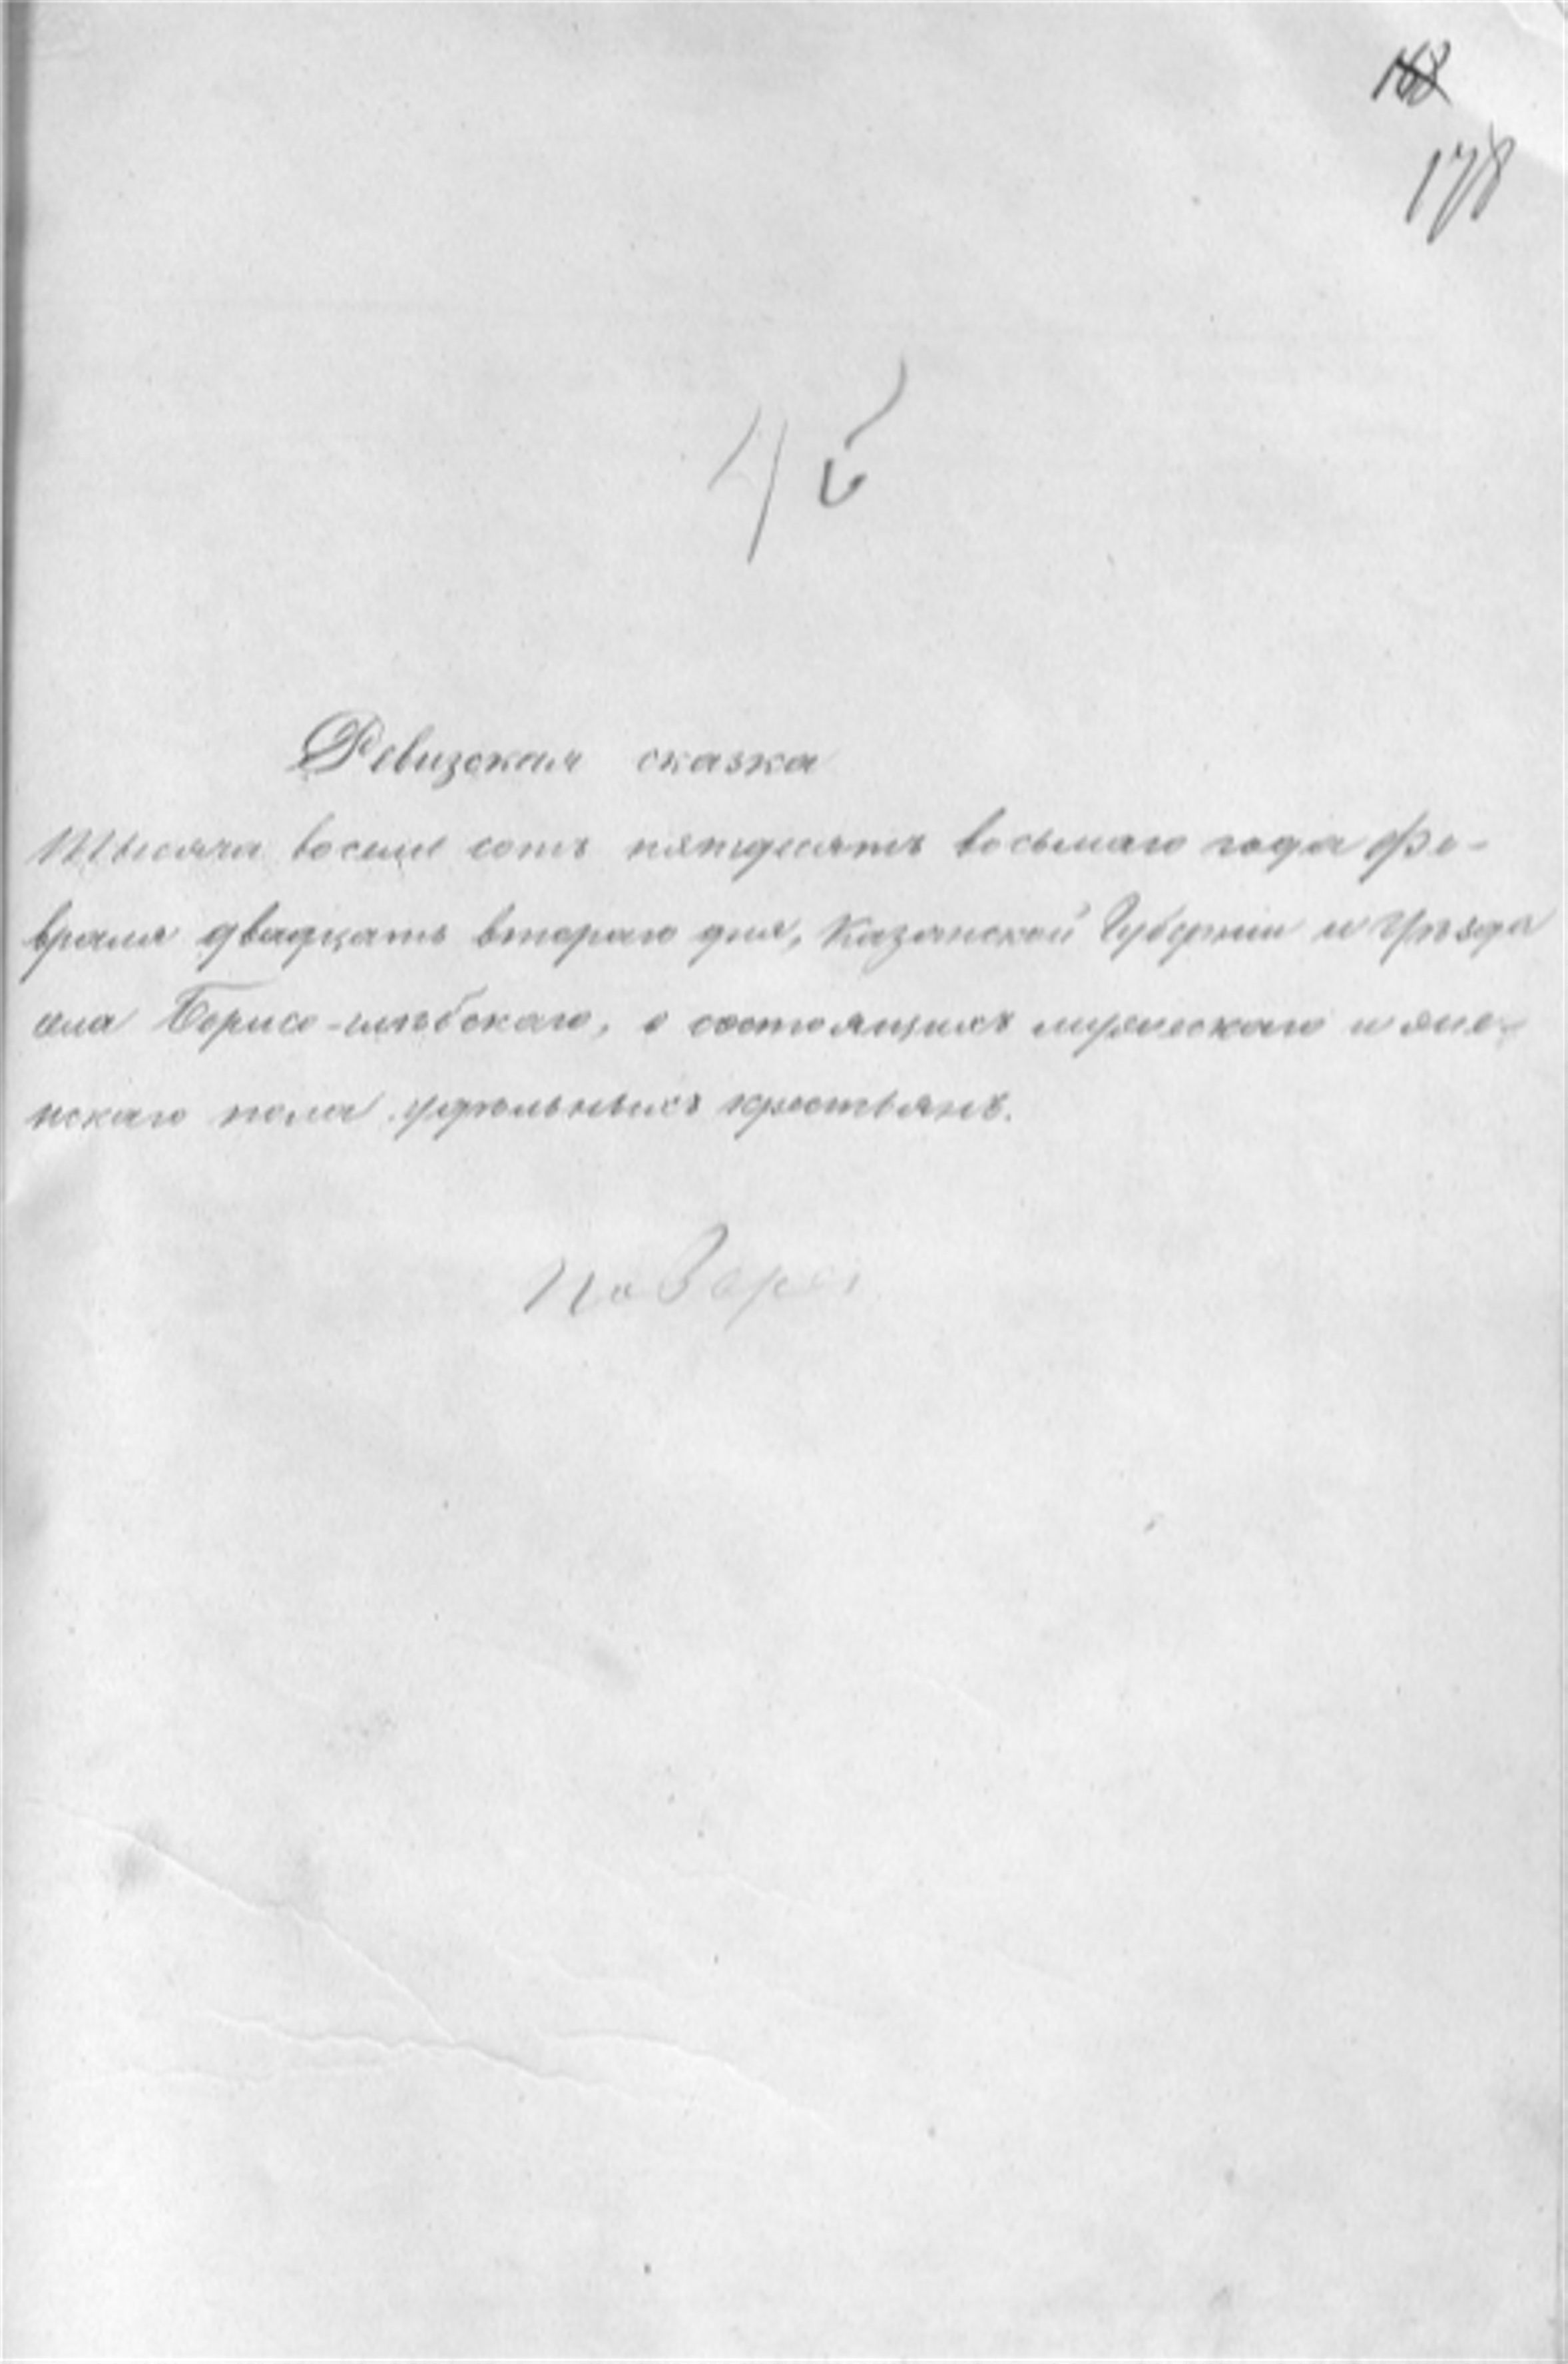 168
178
45
Ревизская сказка
Тысяча восемь сотъ пятдесятъ восьмаго года Фе-
враля двадцать втораго дня, Казанской Губернiи и Уѣзда
села Борисо-глѣбскаго, о состоящихъ мужескаго и жен-
нскаго пола удѣльныхъ крестьянъ.